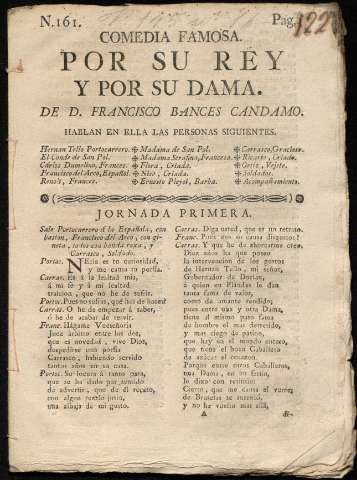 N.161. Pag. 122
COMEDIA FAMOSA.
POR SU REY
Y POR SU DAMA.
DE D. FRANCISCO BANCES CANDAMO.
HABLAN EN ELLA LAS PERSONAS SIGUIENTES.
Hernan Tello Portocarrero. Madama de San Pol. Carrasco, Gracioso.
El Conde de San Pol. Madama Serafina, Francesa. Ricarto, Criado.
Cárlos Dumelino, Frances. Flora, Criada.
Francisco del Arco, Español. Criada. Soldados.
Frances. Ernesto Barba. Acompañamiento.
JORNADA PRIMERA.
Sale Portocarrero á lo Español, con
baston, Francisco del Arco, con gi-
neta, todos con banda roxa, y
Carrasco, Soldado.
Portoc. Necia es tu curiosidad,
y me cansa tu porfia.
Carras. Es á la lealtad mia,
á mi fe y á mi lealtad
traicion, que no he de sufrir.
Portoc. Pues no sufras, qué has de hacer?
Carras. O he de empezar á saber,
ó he de acabar de servir.
Franc. Hágame Vueseñoría
Juez árbitro entre los dos,
que es novedad, vive Dios,
despedirse una porfia
Carrasco, habiendo servido
tantos años en su casa.
Portoc. Su locura á tanto pasa,
que se ha dado por sentido
de advertir, que de él recato,
con algun rezelo justo,
una alhaja de mi gusto.
Carras. Diga usted, que es un retrato.
Franc. Pues eso os causa disgusto?
Carras. Y que he de ahorcarme creo.
Dios años ha que poseo
la intervencion de los gustos
de Hernan Tello, mi señor,
Gobernador de Dorlan,
á quien en Flándes le dan
tanta fama de valor,
como de amante rendido;
pues entre una y otra Dama,
tiene al mismo paso fama
de hombre el mas derretido,
y mas ciego de patino,
que hay en el mundo entero,
que tiene el buen Caballero
de azúcar el corazon.
Porque entre otros Caballeros,
una Dama, en un festin,
le dixo con retintin
Cierto, que me cansa el verlos
de Bruselas se ausentó,
y no ha vuelto mas allá,
A di-